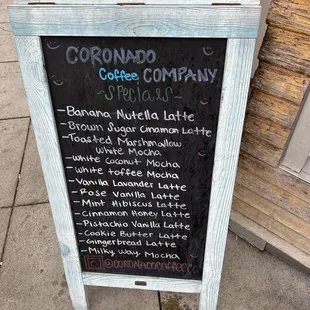 CORONADO
Coffee COMPANY
~Specials~
-Banana Nutella Latte
-Brown Sugar Cinnamon Latte
-Toasted Marshmallow
White Mocha
-White Coconut Mocha
-White toffee Mocha
-Vanilla Lavander Latte
-Rose Vanilla Latte
-Mint Hibiscus Latte
-Cinnamon Honey Latte
-Pistachio Vanilla Latte
-Cookie Butter Latte
-Gingerbread Latte
-Milky Way Mocha
@CORONADOCOFFEECO